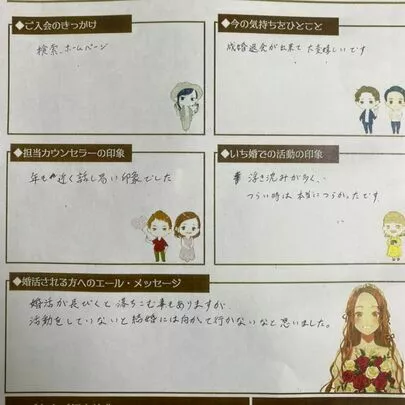 ◆ご入会のきっかけ
検索、ホームページ
◆今の気持ちをひとこと
成婚退会が出来て大変嬉しいです
◆担当カウンセラーの印象
年も近く話し易い印象でした
◆いち婚での活動の印象
浮き沈みが多く、
つらい時は本当につらかったです
◆婚活される方へのエール・メッセージ
婚活が長びくと落ちこむ事もありますが、
活動をしていないと結婚には向かって行かないなと思いました。